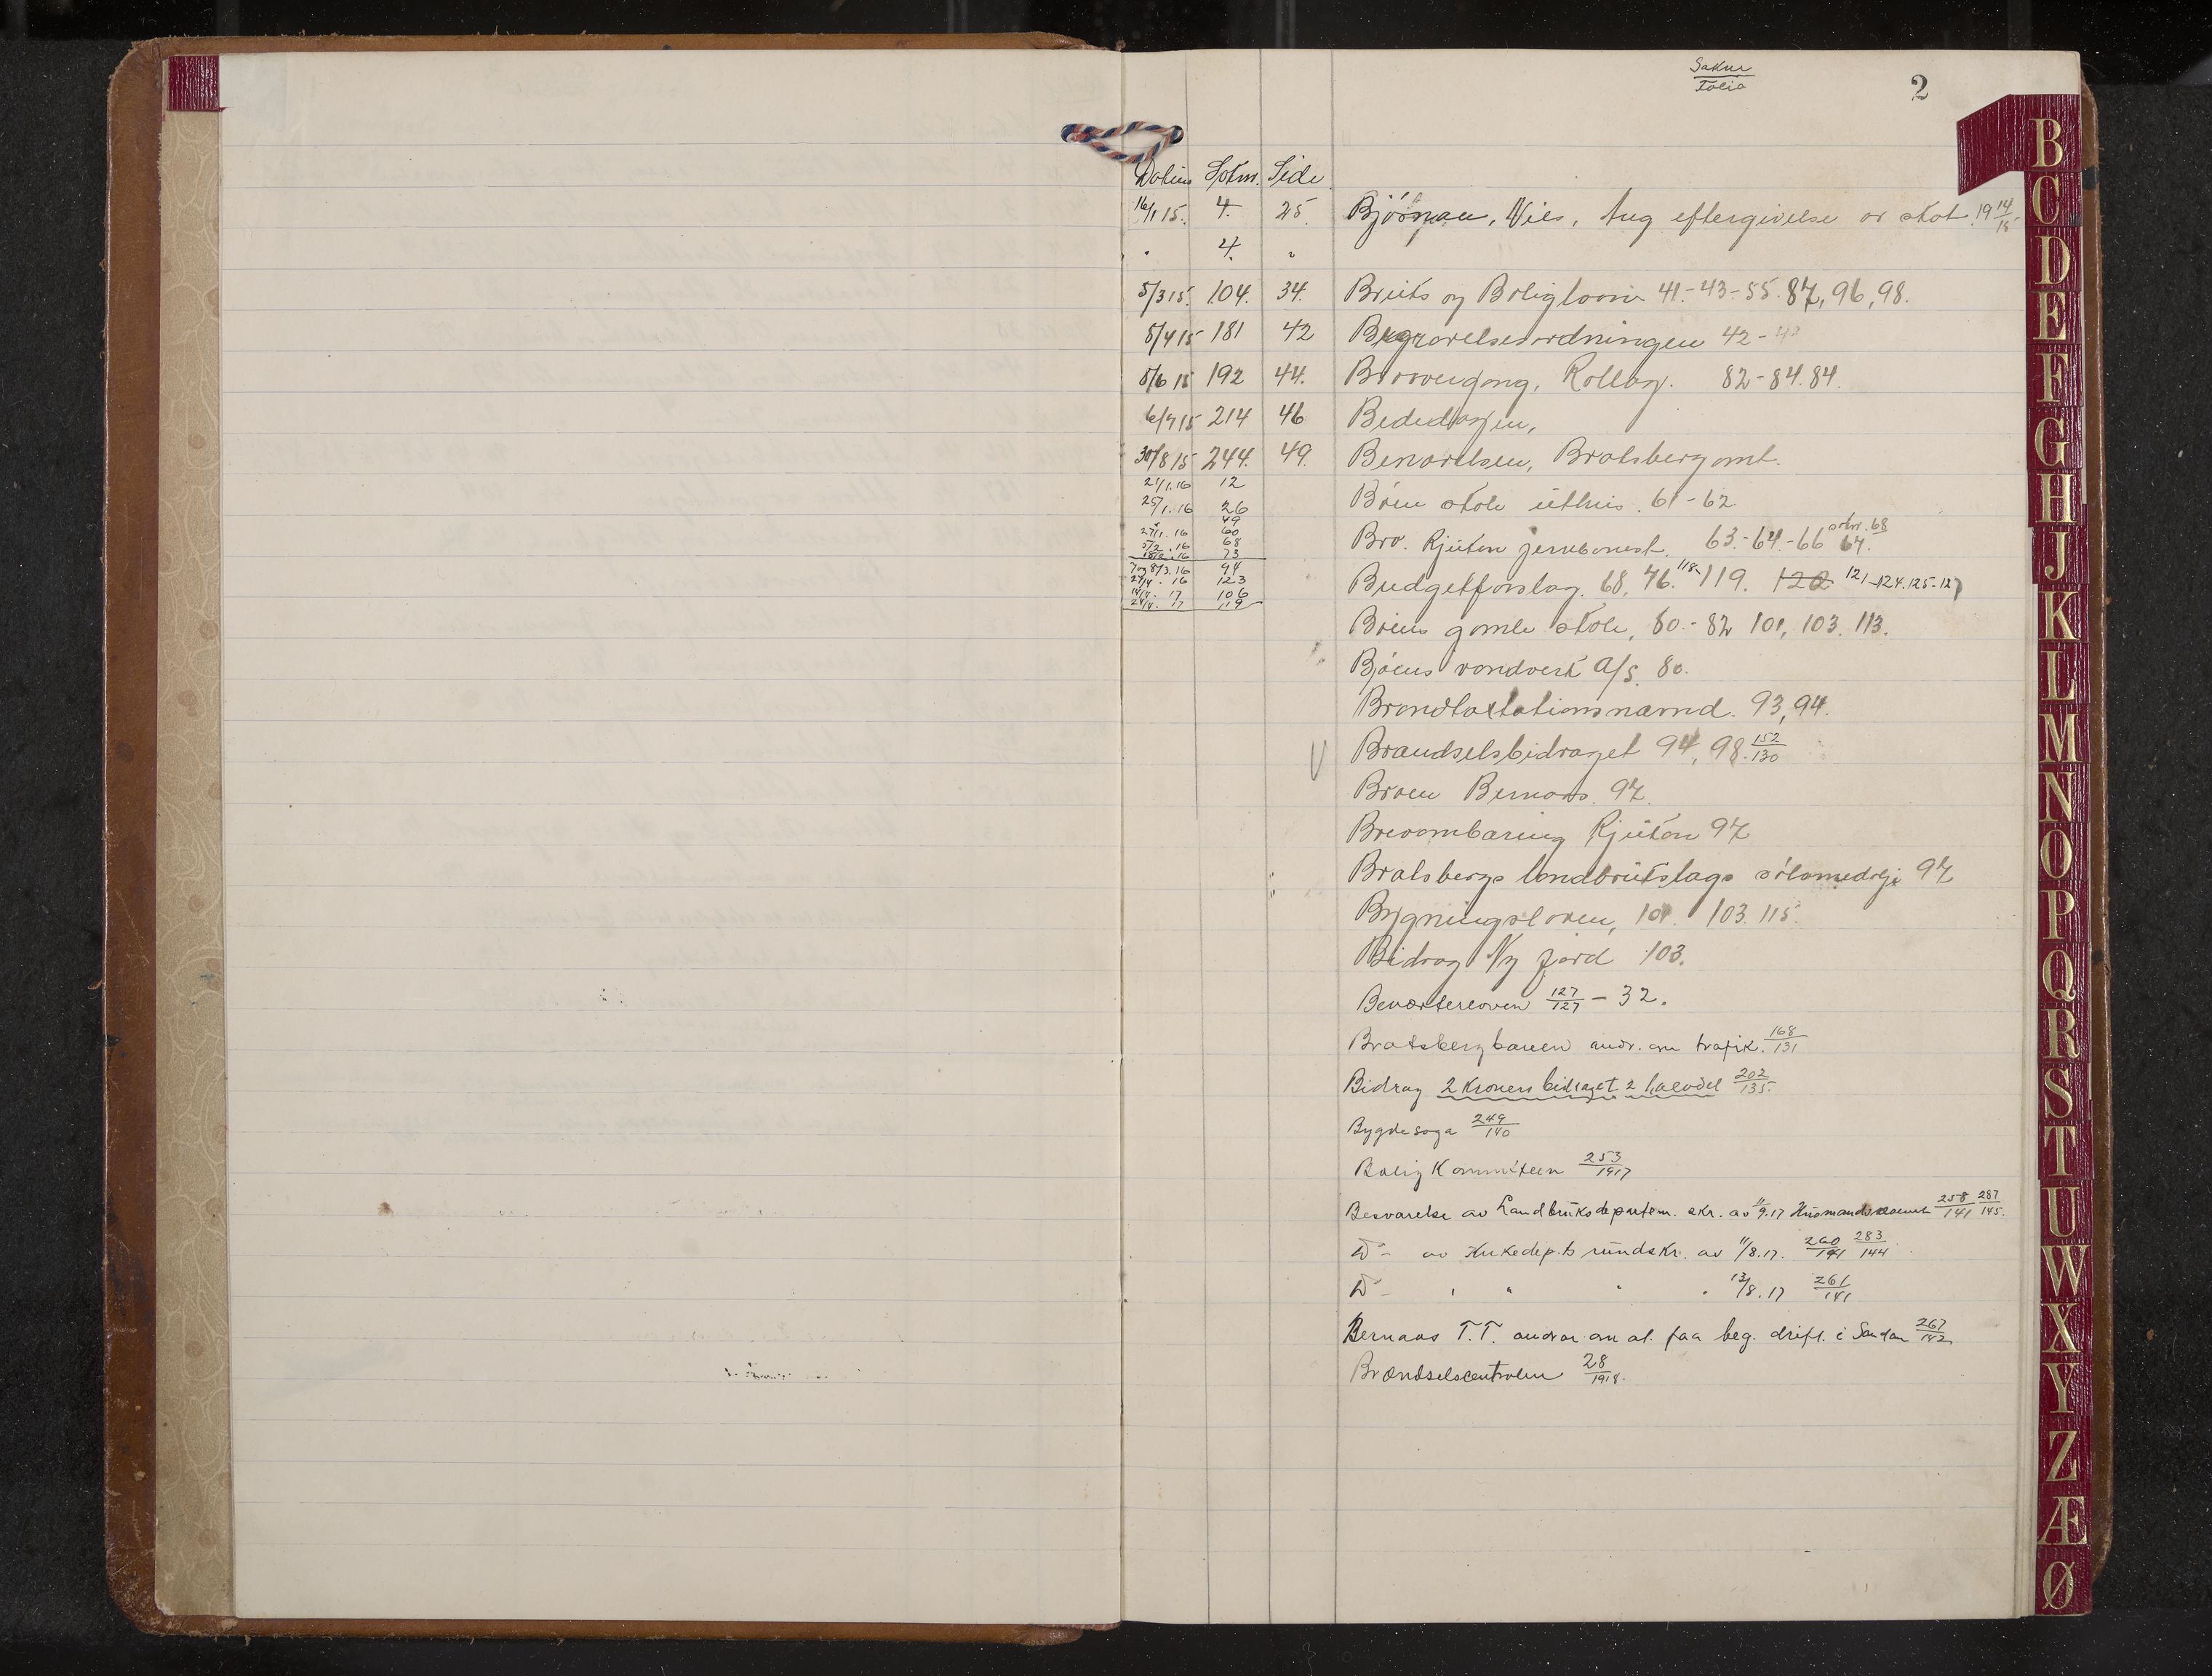 Saknr
Folio
2
Datum Spkm. Side
16/1 15. 4. 25. Björnaas, Nils, Aug eftergivelse av skat 19 14/15
" 4. "
5/3 15. 104. 34. Bruks og Boligloven 41.-43-55.87, 96, 98.
8/4 15 181 42 Begravelsesordningen 42-43
8/6 15 192 44. Broovergang, Rollag. 82-84.84.
6/7 15 214 46 Bededagen,
30/8 15 244. 49. Benævelsen, Bratsberg amt.
21/1.16 12
25/1.16 26 Böen skole uthus. 61-62
49
27/1.16 60
5/2.16 68 Bro. Rjukan jernbanest. 63.-64-66 67. 68
18/2.16 73
7 og 8/3.16 94
27/4.16 123 Budgetforslag. 68, 76. 118-119. 120 121-124.125-127
14/4.17 106
24/4.17 119
Böens gamle skole, 80.-82 101, 103. 113.
Bjöens vandverk A/S. 80.
Brandtakstationsnævnd. 93, 94.
V Brændselsbidraget 94, 98. 152/130
Broen Bernaas. 97.
Breombæring Rjukan 97
Bratsbergs landbrukslags sölvmedalje 97
Bygningsloven, 101. 103. 115.
Bidrag Ny jord 103.
Beværterloven 127/127 - 32.
Bratsbergbanen andr. om trafik. 168/131
Bidrag 2 Kroners bidraget 2 halvdel 202/135.
Bygdesoga 249/140
Bolig Kommiteen 253/1917
Besvarelse av Landbruksdepartem. skr. av 11/9.17 Husmandsvæsenet 258/141 287/145.
Do - av Kirkedep.ts rundskr. av 11/8.17. 260/141 283/144
Do - " " " " 13/8.17 261/141
Bernaas T.T. andrar om at faa beg. drift. i Sandan 267/142
Brændselscentralen 28/1918.
B
C
D
E
F
G
H
J
K
L
M
N
O
P
Q
R
S
T
U
W
X
Y
Z
Æ
Ø